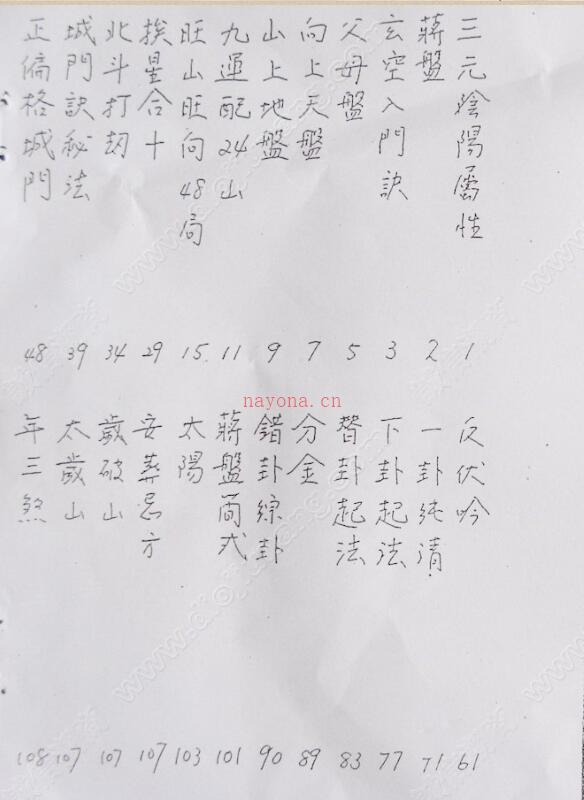 三元陰陽屬性 1
蔣盤 2
玄空入門訣 3
父母盤 5
向上天盤 7
山上地盤 9
九運配24山 11
旺山旺向48局 15
挨星合十 29
北斗打劫 34
城門訣秘法 39
正偏格城門 48
反伏吟 61
一卦純清 71
下卦起法 77
替卦起法 83
分金 89
錯卦綜卦 90
蔣盤兩式 101
太陽 103
安葬忌方 107
歲破山 107
太歲山 107
年三煞 108
nayona.cn